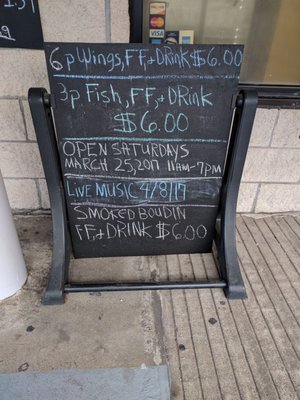 6p Wings, FF, + Drink $6.00
3p Fish, FF, + DRink
$6.00
OPEN SATURDAYS
MARCH 25, 2017 11AM-7PM
LIVE MUSIC 4/8/17
SMOKED BOUDIN
FF, + DRINK $6.00
VISA